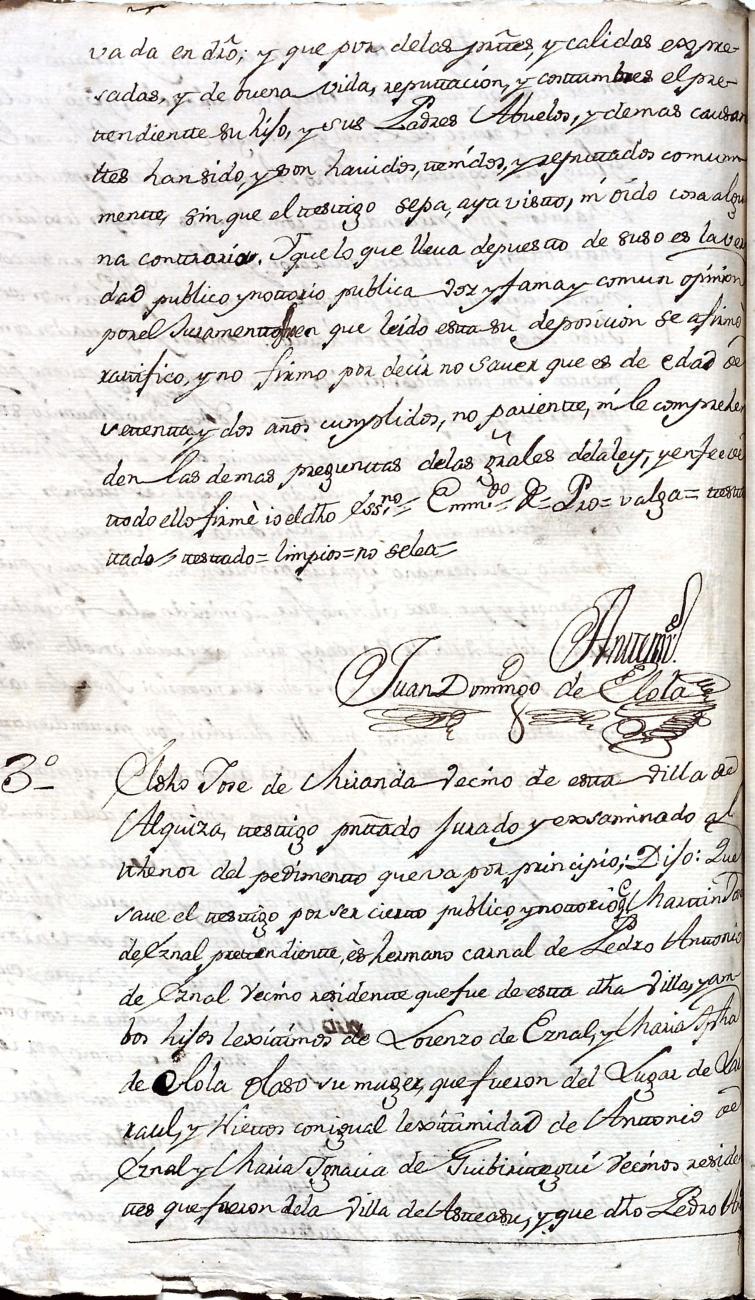 vada en dr̃o; y que por delas p̃ntes, y calidas expre-
sadas, y de buena vida, reputtación, y conttumbres el pre-
ttendientte su hijo, y sus Padres Abuelos, y demas causan
ttes han sido, y son havidos, ttenídos, y reputtados comunm
mentte, sin que el ttesttigo sepa, aya vistto, ní oído cosa algu
na conttraria. Y que lo que lleva depuestto de suso es la ver
dad publico y nottorio publica voz y fama y comun opinion
por el Juramentto en que leído estta su deposición se afirmó
rattifico, y no firmo por decír no saver que es de edad de
settentta, y dos años cumplidos, no parientte, ní le comprehen
den las demas preguntas delas grales dela ley, y en fee de
ttodo ello firmè io el dho Essno = Enmdo = R = Pro = valga = ttestta
ttado = ttesttado = limpios = no se lea =
Anttemi
Juan Domingo de Elola
3º
El dho Jose de Miranda Vecíno de estta Villa de
Alquiza, ttesttigo p̃nttado Jurado y exsaminado al
tthenor del pedimentto que va por principio; Dijo: Que
save el ttesttigo por ser ciertto publico, y nottorio Marttin
de Eznal prettendiente, ès hermano carnal de Pedro Anttonio
de Eznal Vecíno residentte que fue de estta dha Villa, y am-
bos hijos lexítimos de Lorenzo de Eznal, y Maria
de Elola olaso su muger, que fueron del Lugar de
raul, y Niettos con igual lexittimidad de Anttonio de
Eznal y María Ignacia de Guibirittegui Vecínos reside
ttes que fueron dela Villa de Astteasu, y que dho Pedro An